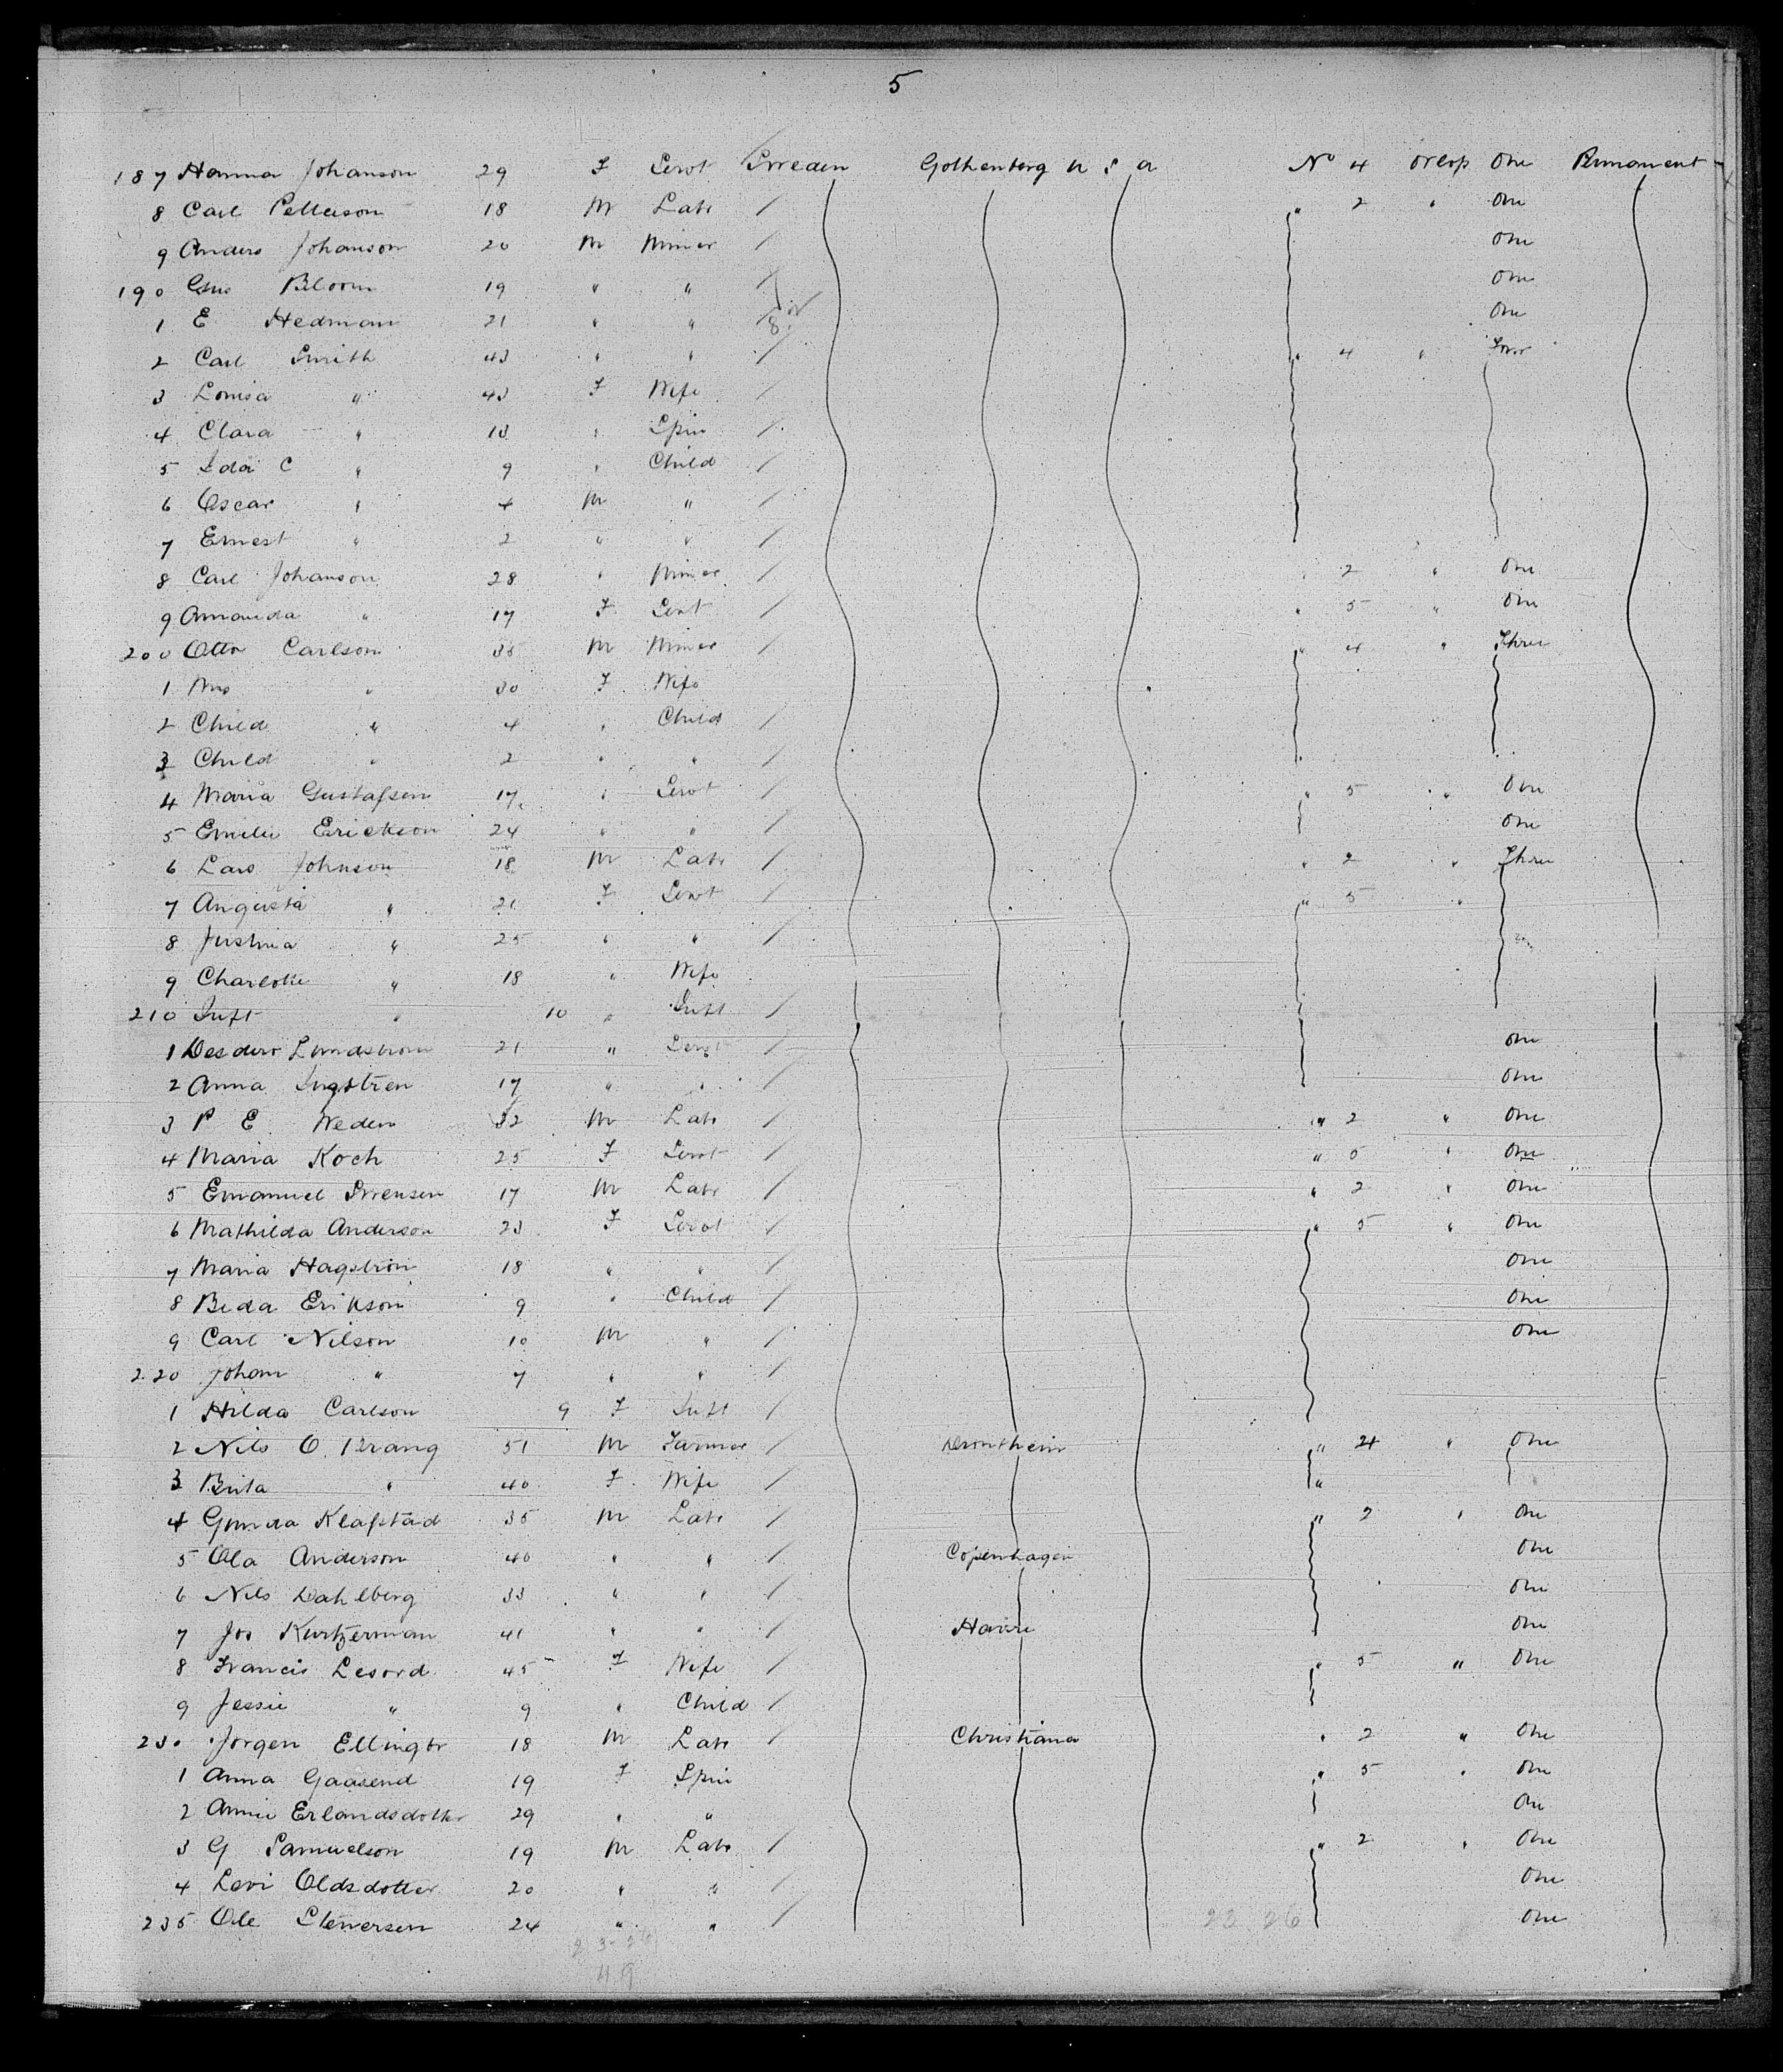 5
187 Hanna Johanson 29 F Servt Sweden Gothenberg U S A No 4 Orlop One Permanent
8 Carl Petterson 18 M Labr / " 2 " One
9 Anders Johanson 20 M Miner / One
190 Gus Bloom 19 " " / One
1 E Hedman 21 " " / One
2 Carl Smith 43 " " / " 4 " Four
3 Louisa " 43 F Wife /
4 Clara " 13 " Spin /
5 Ida C " 9 " Child /
6 Oscar " 4 M " /
7 Ernest " 2 " " /
8 Carl Johanson 28 " Miner / " 2 " One
9 Amanda " 17 F Servt / " 5 " One
200 Otto Carlson 35 M Miner / " 4 " Three
1 Mrs " 30 F Wife
2 Child " 4 " Child /
3 Child " 2 " " /
4 Maria Gustafsen 17 " Servt / " 5 " One
5 Emilie Erickson 24 " " / One
6 Lars Johnson 18 M Labr / " 2 " Three
7 Augusta " 21 F Servt / " 5 "
8 Justina " 25 " " /
9 Charlotte " 18 " Wife
210 Inft " 10 " Inft /
1 Lundstrom 21 " Servt / One
2 Anna Ingstren 17 " " / One
3 P E Weden 32 M Labr / " 2 " One
4 Maria Koch 25 F Servt / " 5 " One
5 Emanuel Svensen 17 M Labr / " 2 " One
6 Mathilda Anderson 23 F Servt / " 5 " One
7 Maria Hagstrom 18 " " / One
8 Beda Erikson 9 " Child / One
9 Carl Nilson 10 M " / One
220 Johan " 7 " " /
1 Hilda Carlson 9 F Inft /
2 Nils O. Brang 51 M Farmer / Drontheim " 4 " One
3 Brita " 40 F Wife / "
4 Klafstad 35 M Labr / " 2 " One
5 Ola Anderson 40 " " / Copenhagen One
6 Nils Dahlberg 33 " " / One
7 Jos Kurtzerman 41 " " / Havre One
8 Francis Lesord 45 F Wife / " 5 " One
9 Jessie " 9 " Child /
230 Jorgen Ellingbr 18 M Labr / Christiana " 2 " One
1 Anna Gaasend 19 F Spin " 5 " One
2 Annie Erlandsdotter 29 " " One
3 G Samuelson 19 M Labr / " 2 " One
4 Levi Oldsdotter 20 " " / One
235 Ole Stenersen 24 " " / 23 26 One
23-26
49